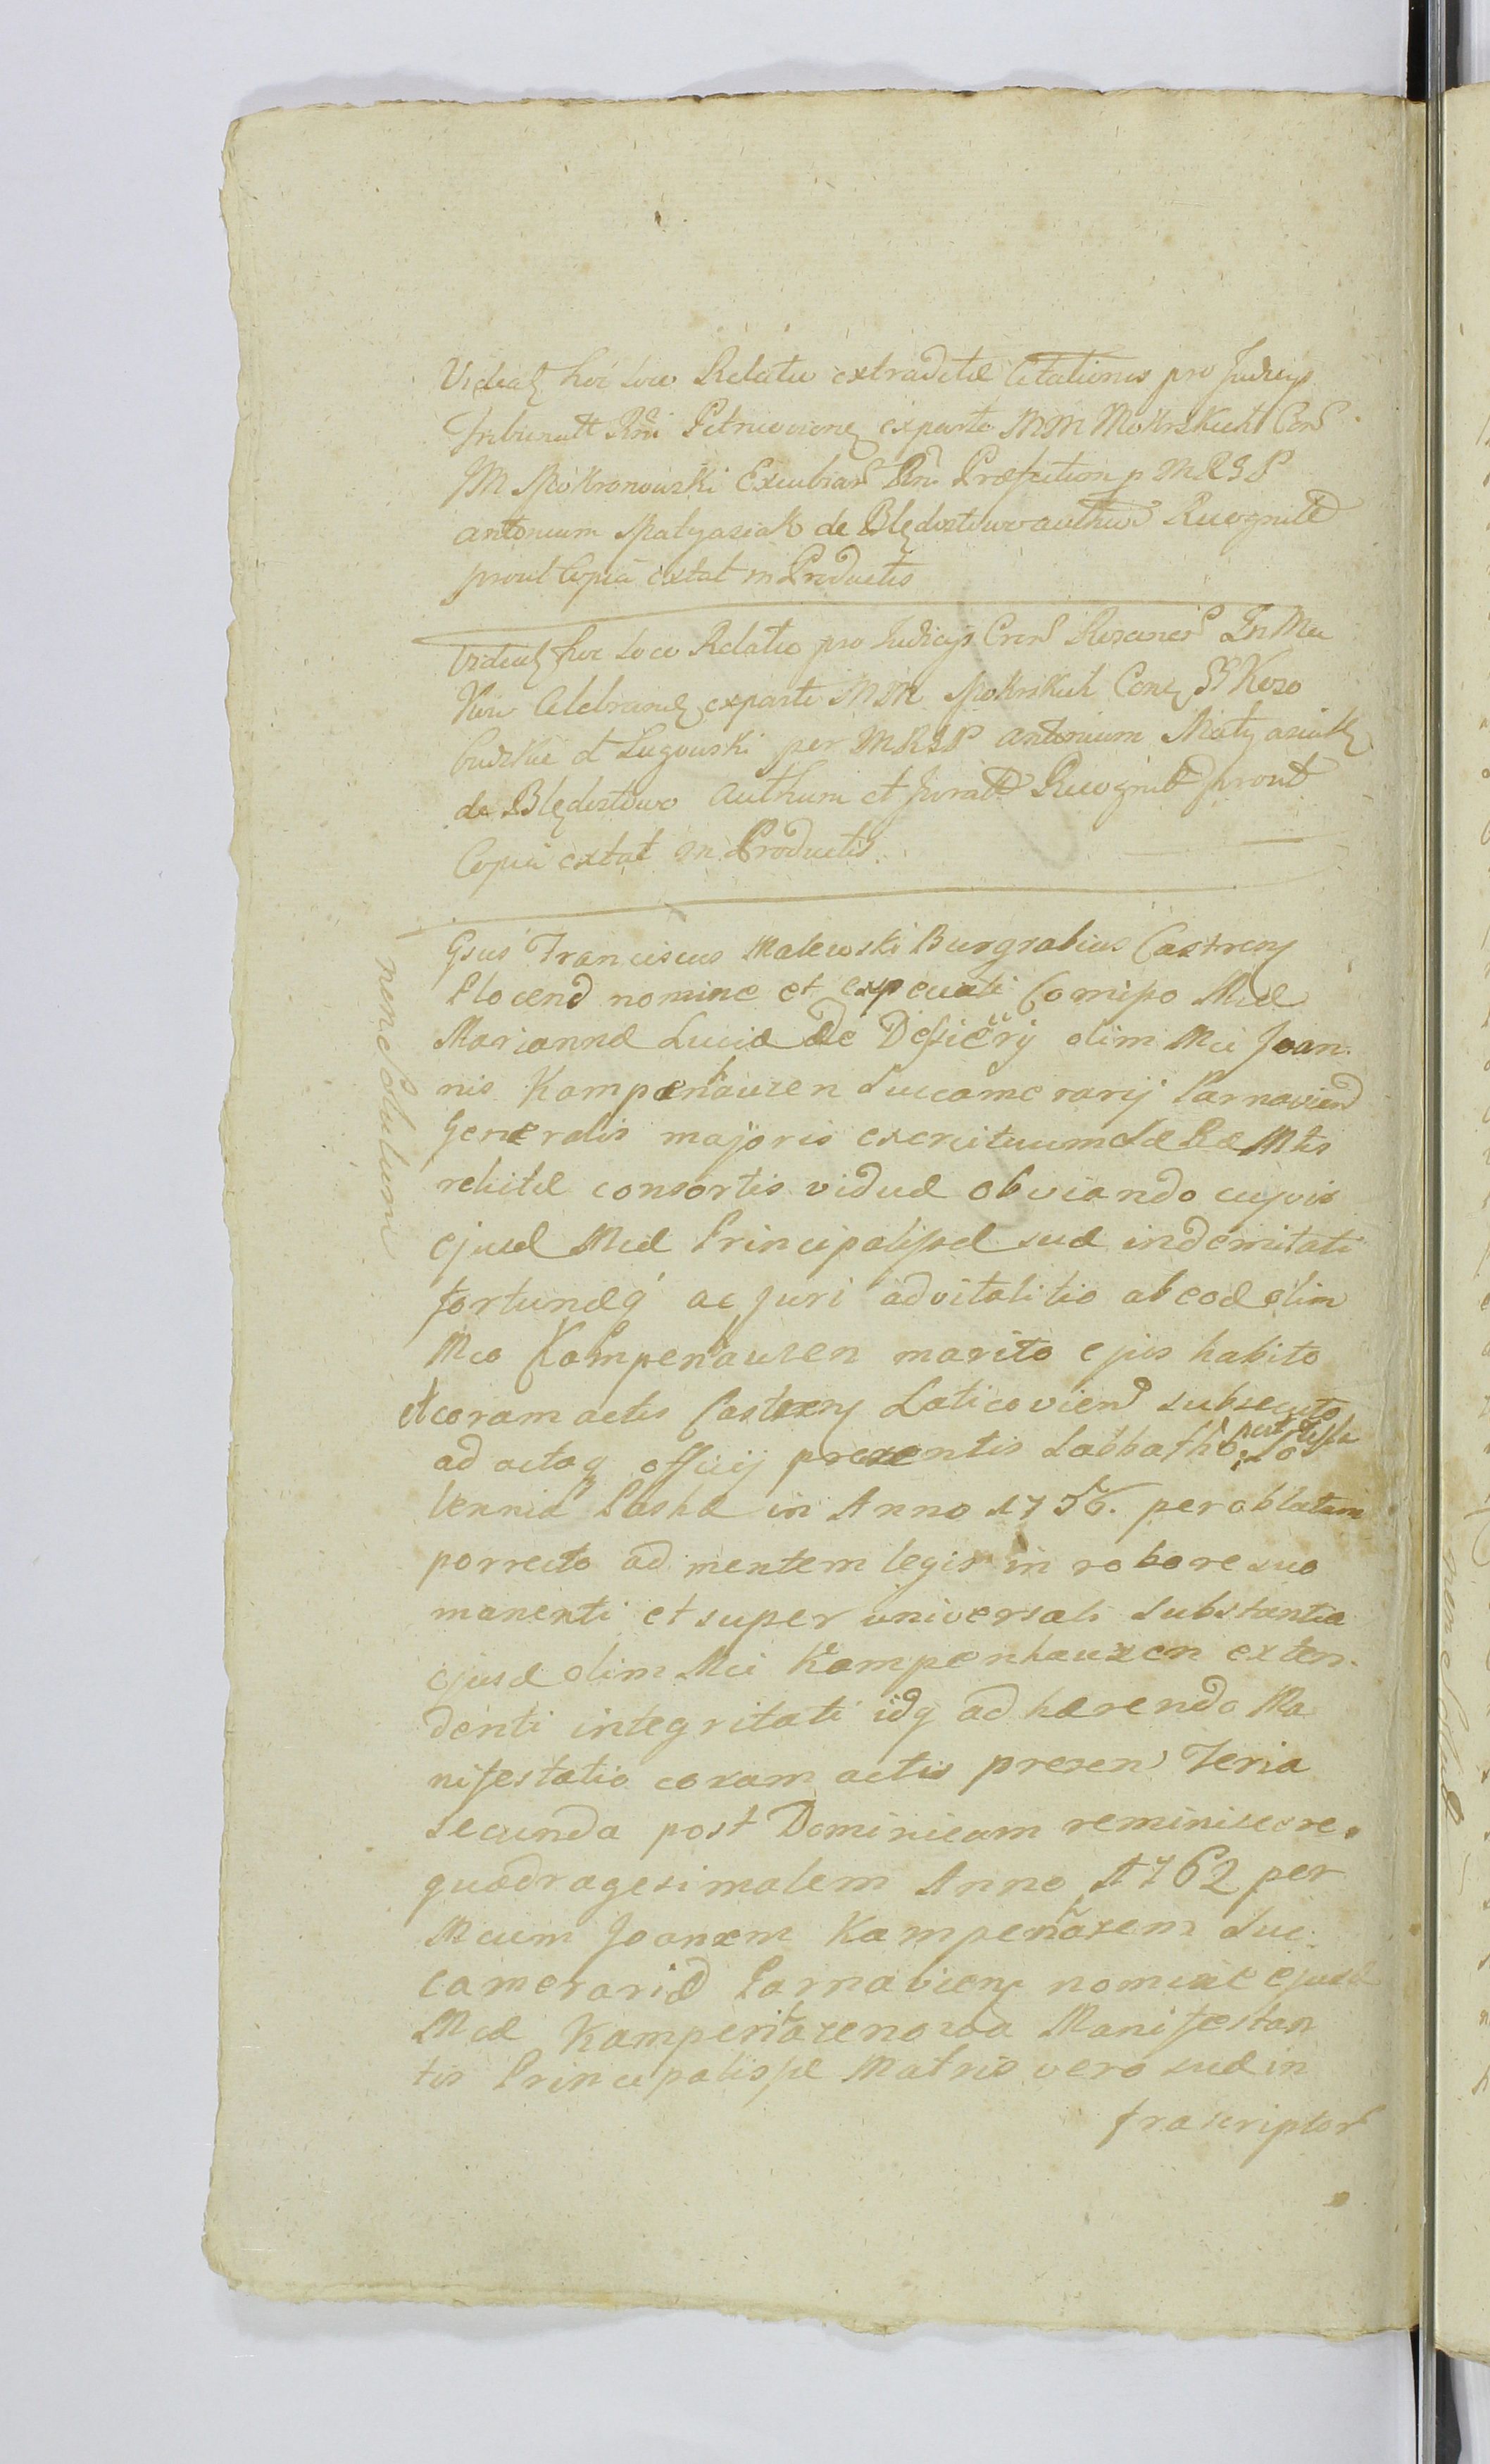 Videatꝫ hoc loco Relatio extraditæ Citationis pro Judicijs
Tribunall Rni Petricovienꝫ exparte MM Mokrskich Con
JM Mokronowski Excubiar Rni Præfection p MRGP
antonium Matyasiak de Blędostowo authen Recognitd
prout Copia extat in Productis
Videatꝫ hoc loco Relatio pro Judicijs Cren Rozanen In Ma
Kow Celebrandꝫ exparte MM Mokrskich Conꝫ Kozo
budzkie et Lugowski per MRGP antonium Matyasiak
de Blędostowo authum et Juratt Recognitt prout
Copia extat in Productis
Gsus Franciscus Malewski Burgrabius Castrenꝫ
Plocens nomine et ex speciali Comisso Mcæ
Mariannæ Luciæ de olim Mci Joan
nis Kampenhauzen Succamerarij Parnavien
Generalis majoris exercituum Sæ Ræ Mtis
relictæ consortis viduæ obviando cujvis
ejusd Mcæ Principalissæ suæ indemitati
fortunæq ac Juri advitalitio ab eod olim
Mco Kampenhauzen marito ejus habito
et coram actis Castrenꝫ Laticovien subsecuto
ad actaq officij prezentis Sabbatho post festa So
lennia Pashæ in Anno 1756. per oblatam
porrecto ad mentem legis in robore suo
manenti et super universali substantia
ejusd olim Mci Kampenhauzen exten
denti integritati idq adhærendo Ma
nifestatio coram actis prezen Feria
secunda post Dominicam reminiscere
quadragesimalem Anno 1762 per
Mcum Joanem Kampenhazen Suc
camerarid Parnavienꝫ nomine ejusd
Mcæ Kampenhazenowa Manifestan
tis Principalissæ Matris vero suæ in
frascriptor
non e solutum